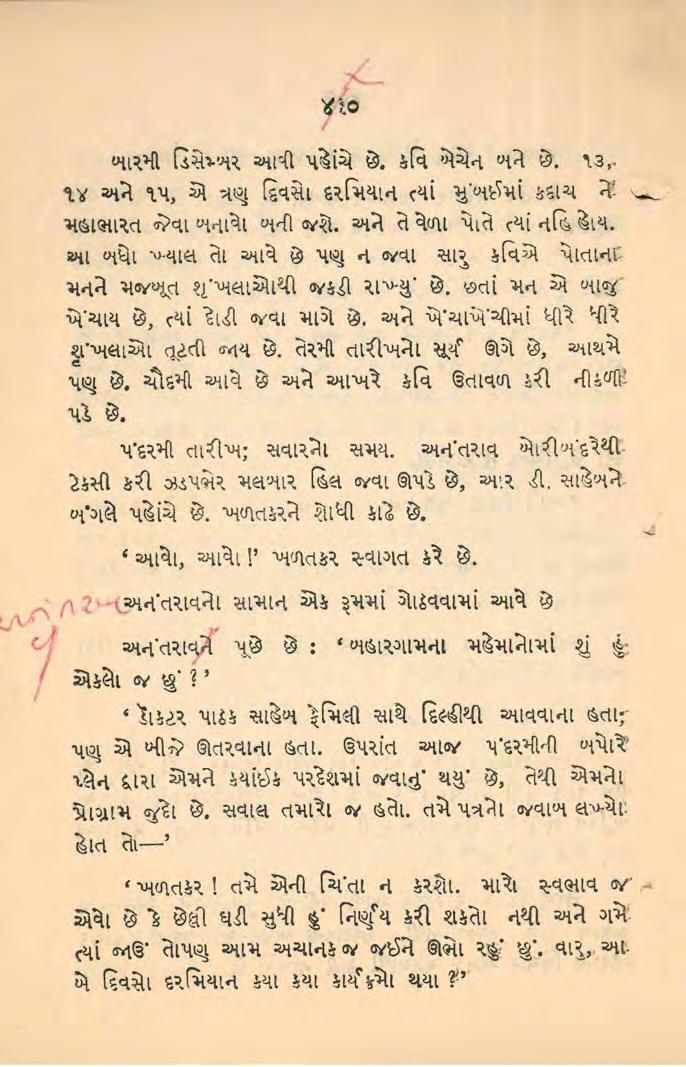 ૪૬૦
બારમી ડિસેમ્બર આવી પહોંચે છે. કવિ બેચેન બને છે. ૧૩,
૧૪ અને ૧૫, એ ત્રણ દિવસો દરમિયાન ત્યાં મુંબઈમાં કદાચ ને
મહાભારત જેવા બનાવો બની જશે. અને તે વેળા પોતે ત્યાં નહિ હોય.
આ બધો ખ્યાલ તો આવે છે પણ ન જવા સારુ કવિએ પોતાના
મનને મજબૂત શૃંખલાઓથી જકડી રાખ્યું છે. છતાં મન એ બાજુ
ખેંચાય છે, ત્યાં દોડી જવા માગે છે. અને ખેંચાખેંચીમાં ધીરે ધીરે
શૃંખલાઓ તૂટતી જાય છે. તેરમી તારીખનો સૂર્ય ઊગે છે, આથમે
પણ છે. ચૌદમી આવે છે અને આખરે કવિ ઉતાવળ કરી નીકળી
પડે છે.
પંદરમી તારીખ; સવારનો સમય. અનંતરાવ બોરીબંદરેથી
ટેકસી કરી ઝડપભેર મલબાર હિલ જવા ઊપડે છે, આર ડી. સાહેબને
બંગલે પહોંચે છે. ખળતકરને શોધી કાઢે છે.
‘ આવો, આવો !’ ખળતકર સ્વાગત કરે છે.
અનંતરાવનો સામાન એક રૂમમાં ગોઠવવામાં આવે છે
અનંતરાવને પૂછે છે : ‘ બહારગામના મહેમાનોમાં શું હું
એકલો જ છું ?’
‘ ડૉકટર પાઠક સાહેબ ફેમિલી સાથે દિલ્હીથી આવવાના હતા;
પણ એ બીજે ઊતરવાના હતા. ઉપરાંત આજ પંદરમીની બપોરે
પ્લેન દ્વારા એમને કયાંઈક પરદેશમાં જવાનું થયું છે, તેથી એમનો
પ્રોગ્રામ જુદો છે. સવાલ તમારો જ હતો. તમે પત્રનો જવાબ લખ્યો
હોત તો—’
‘ ખળતકર ! તમે એની ચિંતા ન કરશો. મારો સ્વભાવ જ
એવો છે કે છેલ્લી ઘડી સુધી હું નિર્ણય કરી શકતો નથી અને ગમે
ત્યાં જાઉં તોપણ આમ અચાનક જ જઈને ઊભો રહું છું. વારુ, આ
બે દિવસો દરમિયાન કયા કયા કાર્યક્રમો થયા ?’